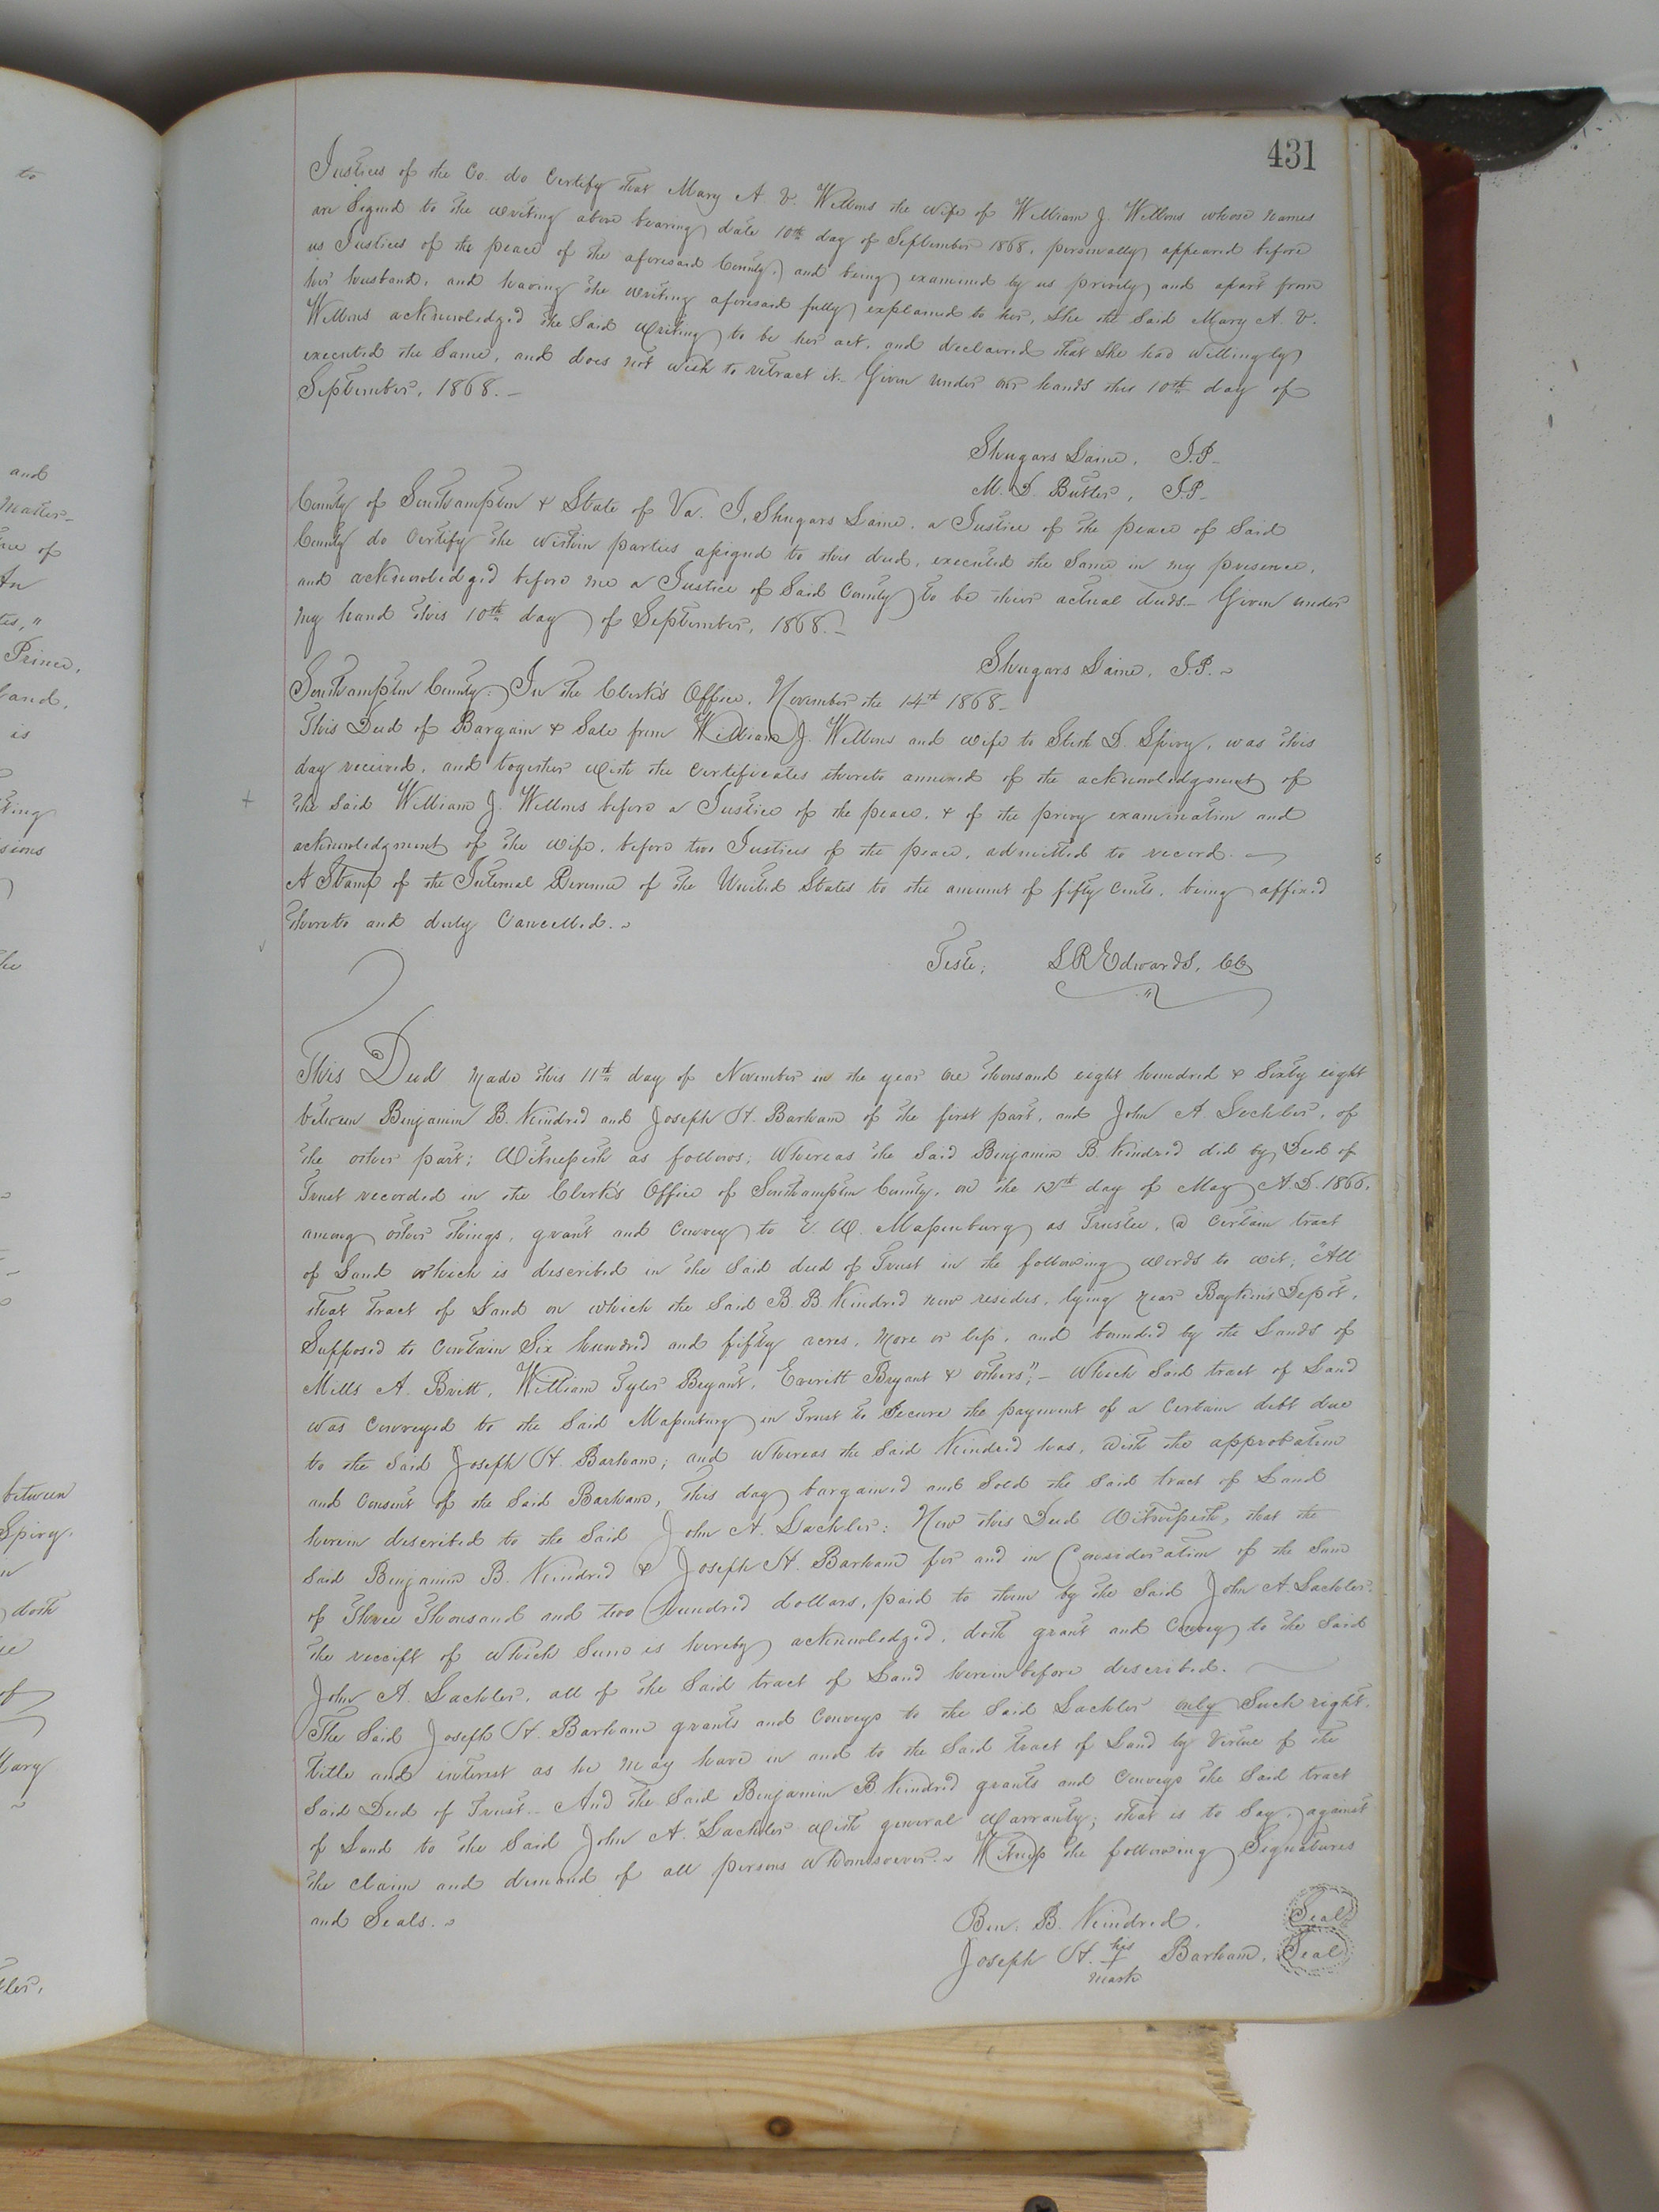 431
Justices of the Co. do Certify that Mary A. V. Wellons the wife of William J. Wellons whose names
are Signed to the writing above bearing date 10th day of September 1868, personally appeared before
us Justices of the peace of the aforesaid County, and being examined by us privily and apart from
her husband, and having the writing aforesaid fully explained to her, She the Said Mary A. V.
Wellons acknowledged the Said writing to be her act, and declared that She had willingly
executed the Same, and does not wish to retract it. Given under our hands this 10th day of
September, 1868.
Shugars Laine, J.P.
M. D. Butler, J.P.
County of Southampton & State of Va. I, Shugars Laine, a Justice of the peace of Said
County do Certify the within parties assigned to this deed, executed the Same in my presence,
and acknowledged before me a Justice of Said County to be their actual deeds. Given under
my hand this 10th day of September, 1868.
Shugars Laine, J.P.
Southampton County. In the Clerk's Office, November the 14th 1868.
This Deed of Bargain & Sale from William J. Wellons and wife to D. Spivy, was this
day received, and together with the Certificates thereto annexed of the acknowledgment of
the Said William J. Wellons before a Justice of the peace, & of the privy examination and
acknowledgment of the wife, before two Justices of the peace, admitted to record.
A Stamp of the Internal Revenue of the United States to the amount of fifty Cents, being affixed
thereto and duly Cancelled.
Teste; L R Edwards, CC
This Deed made this 11th day of November in the year one thousand eight hundred & Sixty eight
between Benjamin B. Kindred and Joseph H. Barham of the first part, and John A. Lachler, of
the other part; Witnesseth as follows; Whereas the Said Benjamin B. Kindred did by Deed of
Trust recorded in the Clerk's Office of Southampton County, on the day of May A.D. 1866,
among other things, grant and Convey to E. W. Massenburg as Trustee, a Certain tract
of Land which is described in the Said deed of Trust in the following words to wit; "All
that tract of Land on which the Said B. B. Kindred now resides, lying near Boykin's Depot,
Supposed to Contain Six hundred and fifty acres, more or less, and bounded by the Lands of
Mills A. Britt, William Tyler Bryant, Everitt Bryant & others"; – Which Said tract of Land
was Conveyed to the Said Massenburg in Trust to Secure the payment of a Certain debt due
to the Said Joseph H. Barham; and Whereas the Said Kindred has, with the approbation
and Consent of the Said Barham, this day bargained and Sold the Said tract of Land
herein described to the Said John A. Lachler: Now this Deed Witnesseth, that the
Said Benjamin B. Kindred & Joseph H. Barham for and in Consideration of the Sum
of Three Thousand and two hundred dollars, paid to them by the Said John A. Lachler,
the receipt of which Sum is hereby acknowledged, doth grant and Convey to the Said
John A. Lachler, all of the Said tract of Land herein before described.
The Said Joseph H. Barham grants and Conveys to the Said Lachler only Such right,
title and interest as he may have in and to the Said tract of Land by Virtue of the
Said Deed of Trust. And the Said Benjamin B. Kindred grants and Conveys the Said tract
of Land to the Said John A. Lachler with general Warranty; that is to Say, against
the claim and demand of all persons whomsoever. Witness the following Signatures
and Seals.
Ben. B. Kindred, Seal
Joseph H. his + mark Barham, Seal
to
and
of
Prince,
Land,
is
between
Spivy,
doth
of